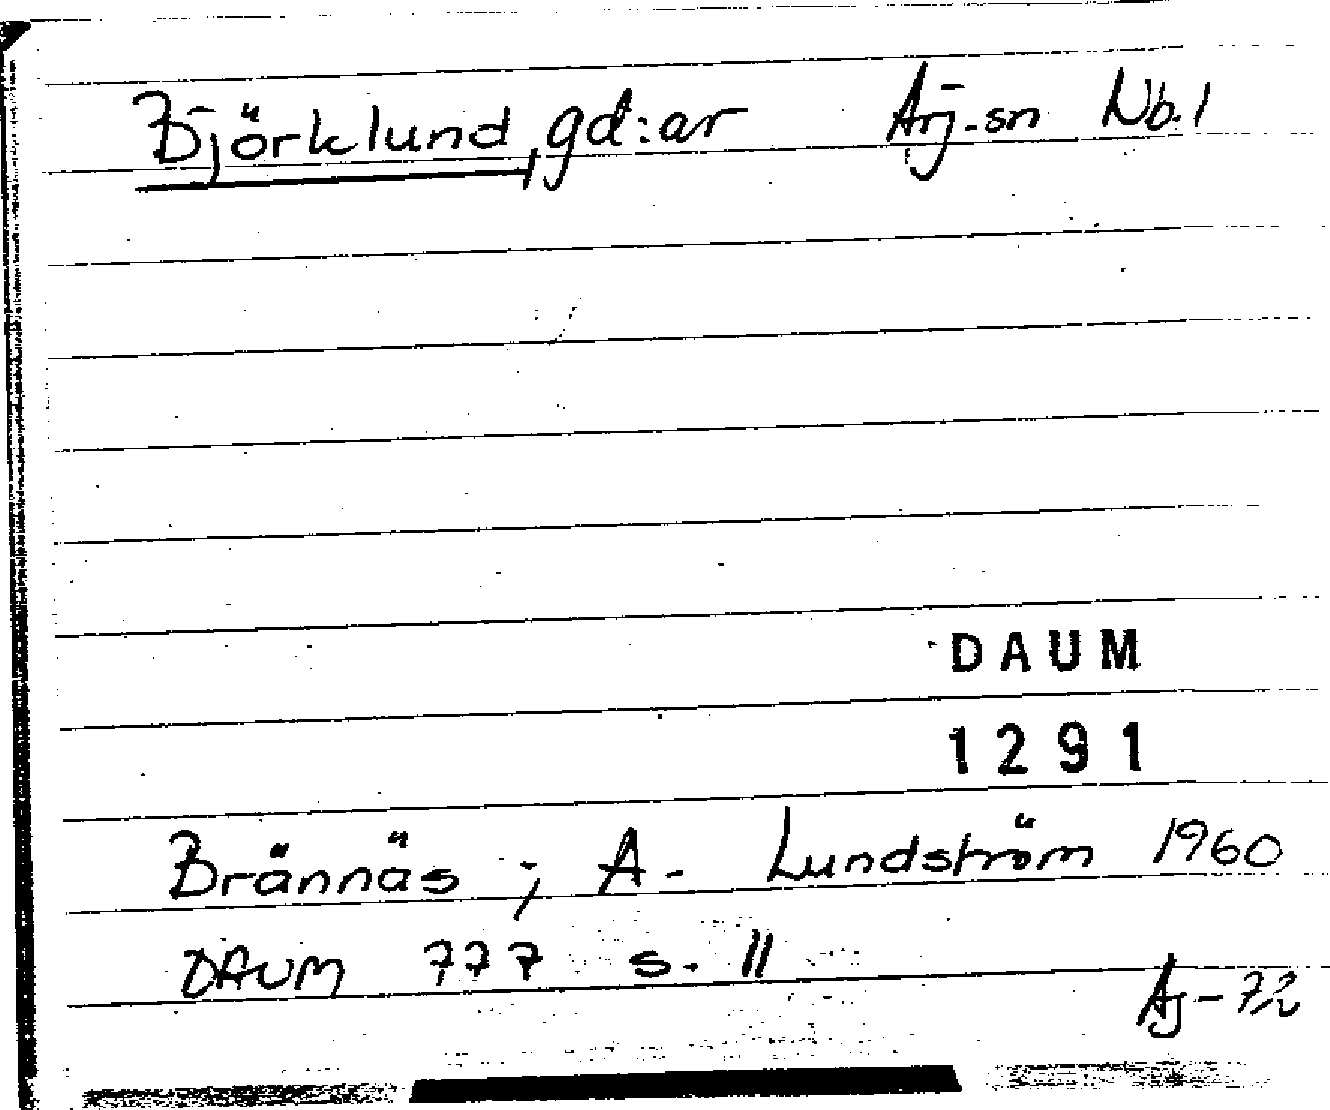 Björklund, gd:ar Arj.-sn Nb.1
DAUM
1291
Brännäs; A. Lundström 1960
DAUM 777 s. 11
Aj-72